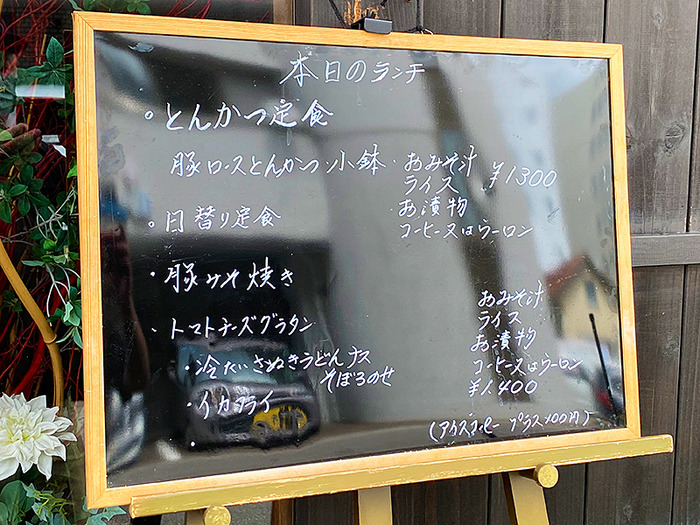 本日のランチ
。とんかつ定食
豚ロースとんかつ 小鉢・おみそ汁
ライス ¥1300
お漬物
コーヒー又はウーロン
。日替り定食
・豚みそ焼き
・トマトチーズグラタン
・冷たいさぬきうどんナス
そぼろのせ
・イカフライ
おみそ汁
ライス
お漬物
コーヒー又はウーロン
¥1.400
(アイスコーヒー プラス100円)